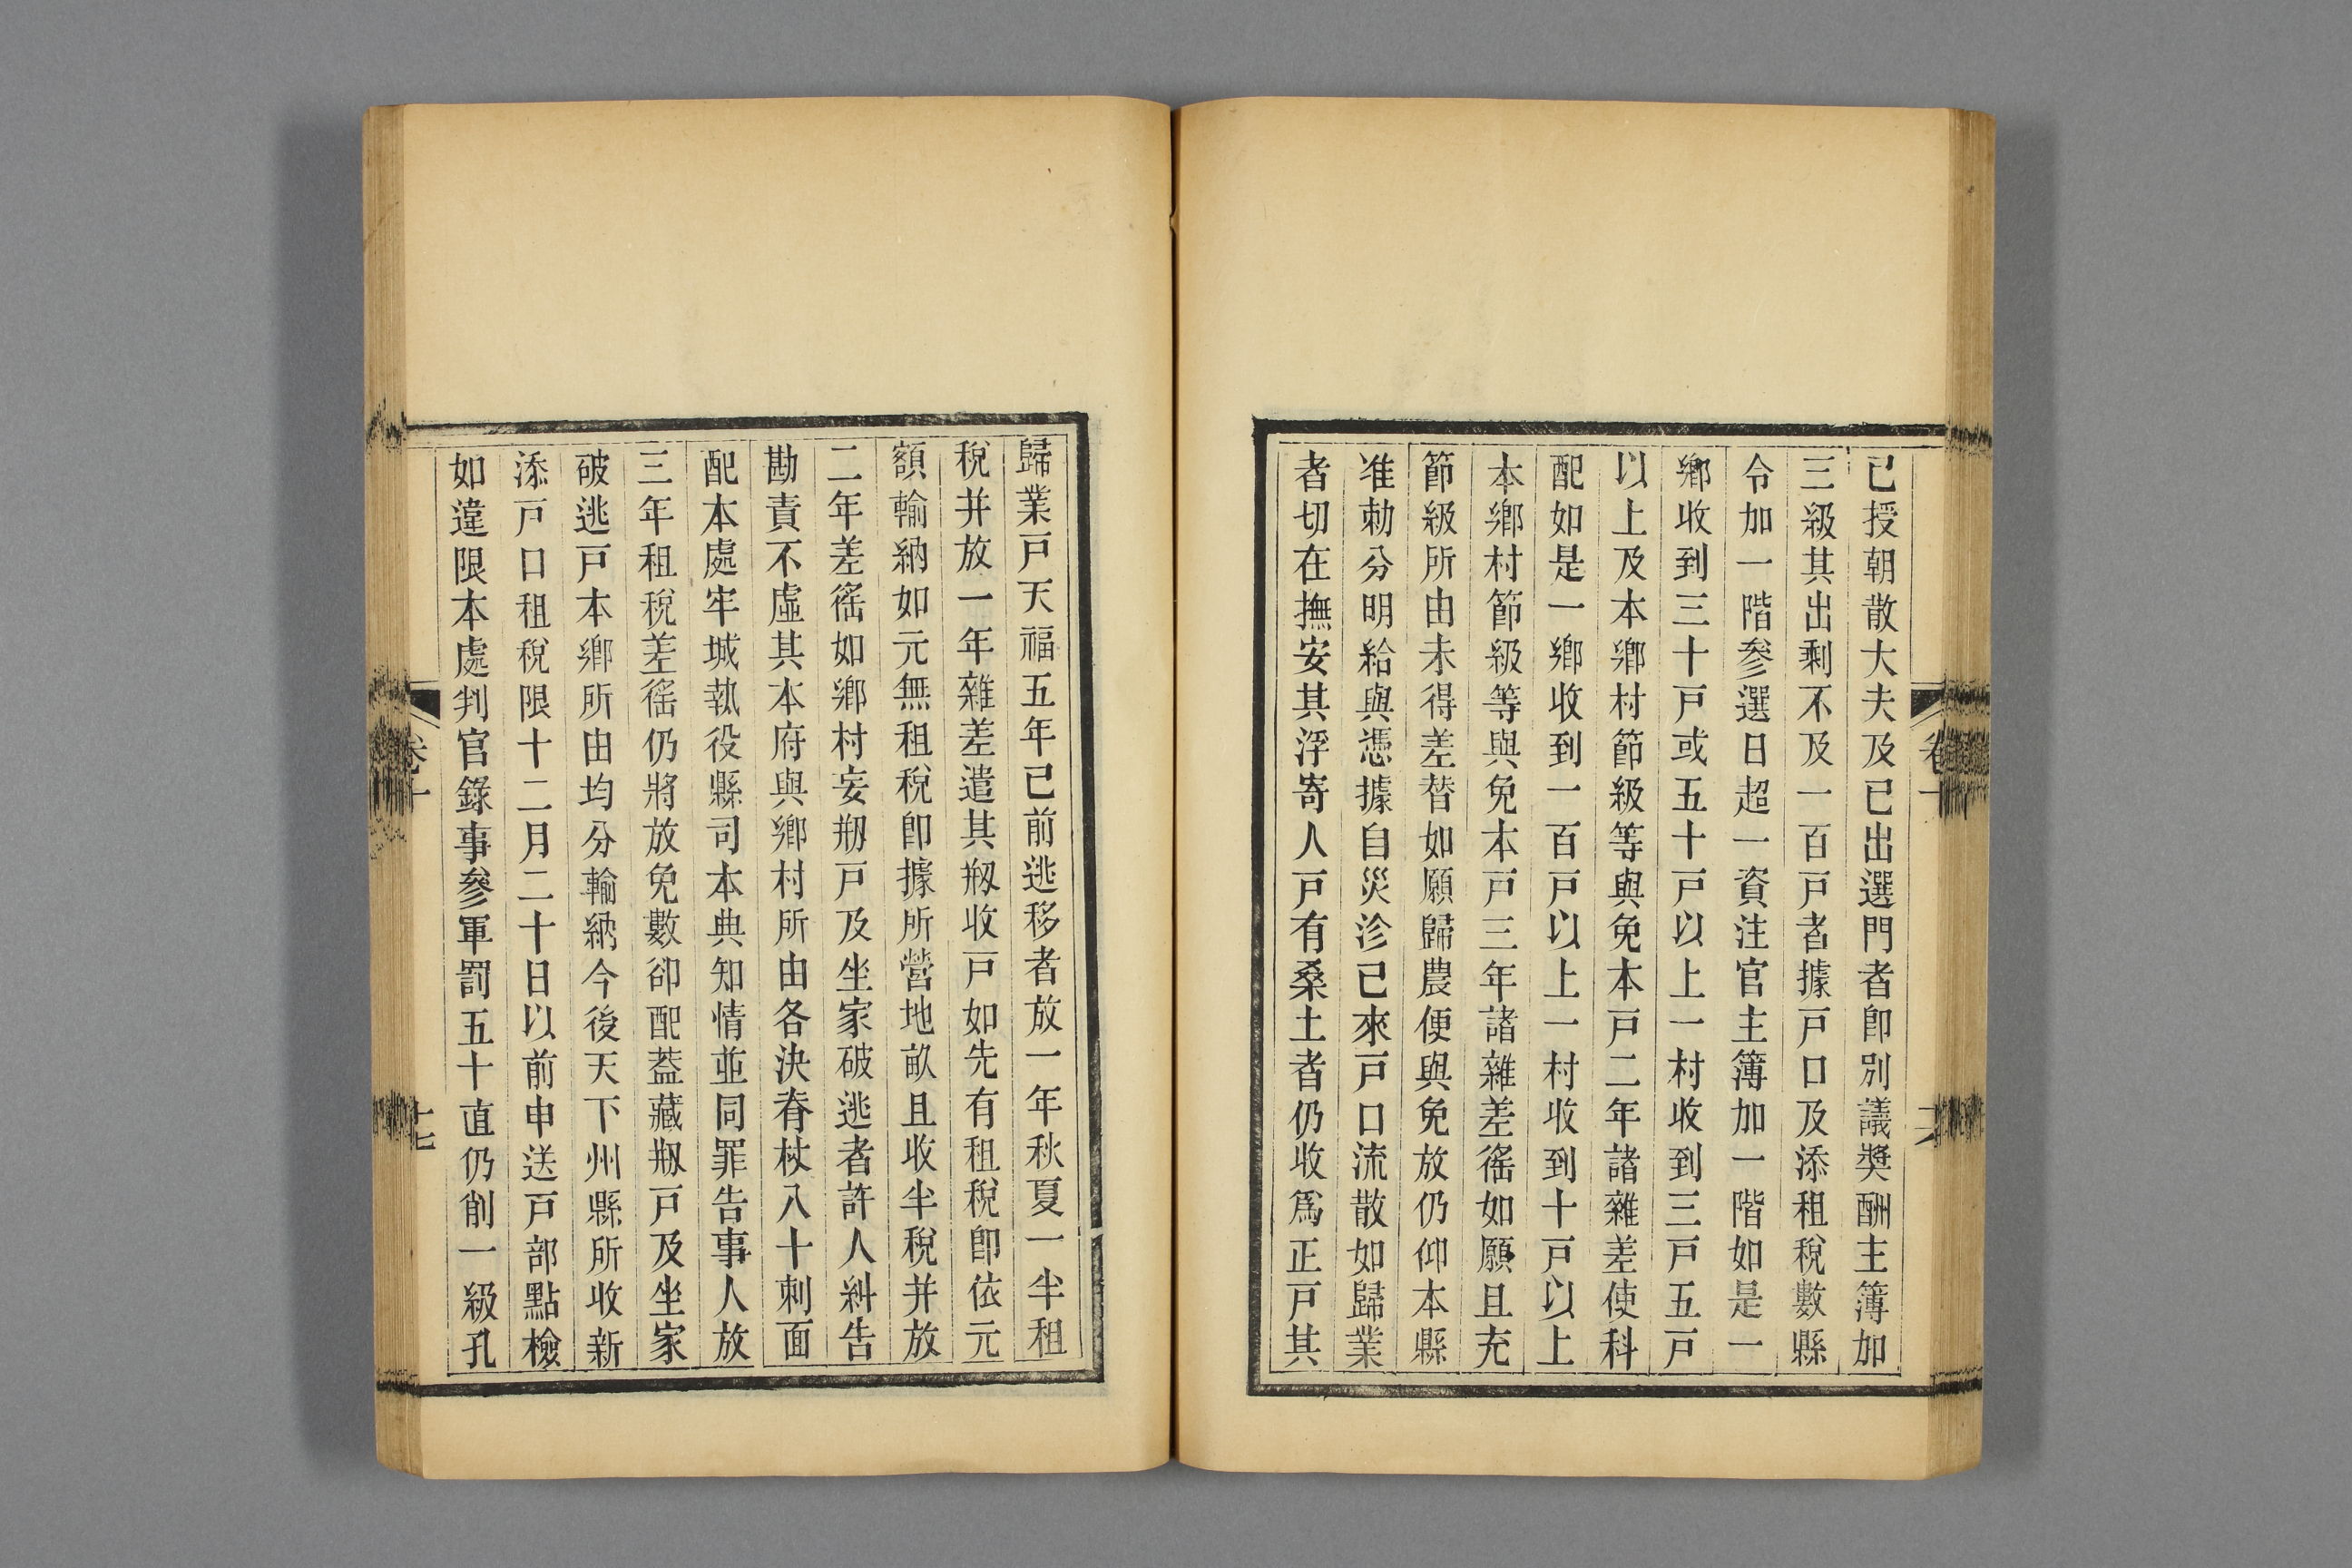 已授朝散大夫及已出選門者卽別議奬酬主簿加
三級其出剩不及一百戸者據戸口及添租稅數縣
令加一階參選日超一資注官主簿加一階如是一
鄉收到三十戸或五十戸以上一村收到三戸五戸
以上及本鄉村節級等與免本戸二年諸雜差使科
配如是一鄉收到一百戸以上一村收到十戸以上
本鄉村節級等與免本戸三年諸雜差徭如願且充
節級所由未得差替如願歸農便與免放仍仰本縣
准勅分明給與憑據自災沴已來戸口流散如歸業
者切在撫安其浮寄人戸有桑土者仍收爲正戸其
卷十
歸業戸天福五年已前逃移者放一年秋夏一半租
稅并放一年雜差遣其剏收戸如先有租稅卽依元
額輸納如元無租稅卽據所營地畝且收半稅并放
二年差徭如鄉村妄剏戸及坐家破逃者許人糾告
勘責不虛其本府與鄉村所由各決脊杖八十刺面
配本處牢城執役縣司本典知情並同罪告事人放
三年租稅差徭仍將放免數卻配蓋藏剏戸及坐家
破逃戸本鄉所由均分輸納今後天下州縣所收新
添戸口租稅限十二月二十日以前申送戸部點檢
如違限本處判官錄事參軍罰五十直仍削一級孔
卷十
十七